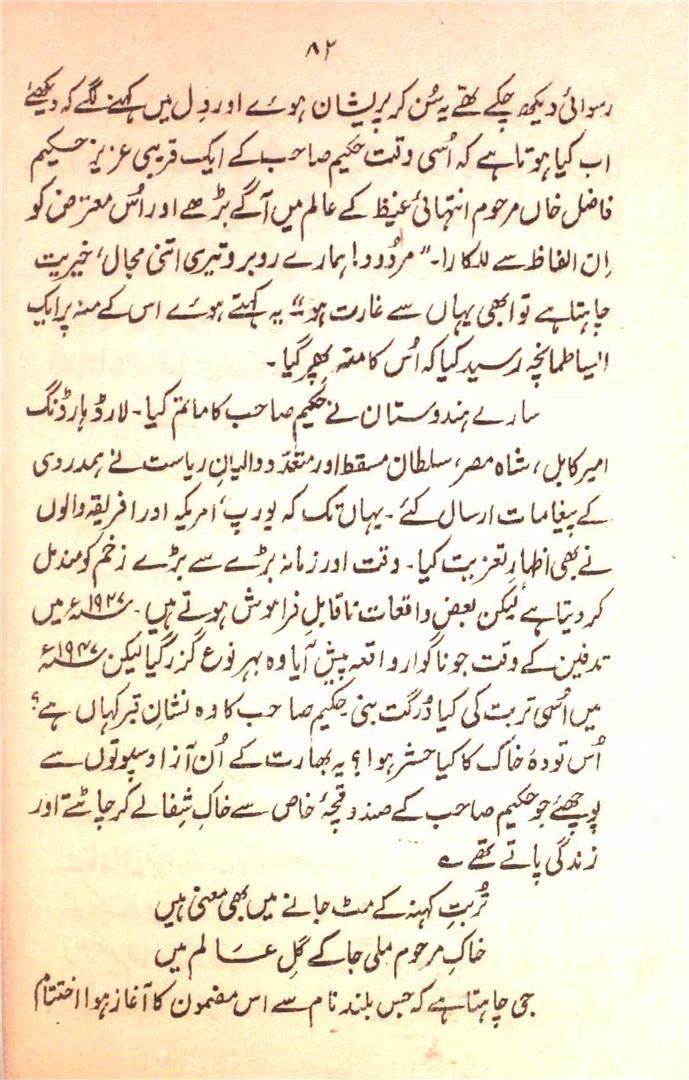 ۸۲
رسوائی دیکھ چکے تھے یہ سُن کر پریشان ہوئے اور دِل میں کہنے لگے کہ دیکھئے
اب کیا ہوتا ہے کہ اُسی وقت حکیم صاحب کے ایک قریبی عزیز حکیم
فاضل خاں مرحوم انتہائی غیظ کے عالم میں آگے بڑھے اور اُس معترض کو
اِن الفاظ سے للکارا۔ "مردُود! ہمارے روبرو تیری اتنی مجال، خیریت
چاہتا ہے تو ابھی یہاں سے غارت ہو" یہ کہتے ہوئے اس کے منہ پر ایک
ایسا طمانچہ رسید کیا کہ اُس کا منہ پھر گیا۔
سارے ہندوستان نے حکیم صاحب کا ماتم کیا۔ لارڈ ہارڈنگ
امیر کابل، شاہ مصر، سلطان مسقط اور متعدّد والیانِ ریاست نے ہمدردی
کے پیغامات ارسال کئے۔ یہاں تک کہ یورپ، امریکہ اور افریقہ والوں
نے بھی اظہارِ تعزیت کیا۔ وقت اور زمانہ بڑے سے بڑے زخم کو مندمل
کر دیتا ہے لیکن بعض واقعات ناقابلِ فراموش ہوتے ہیں۔ ۱۹۲۷ء میں
تدفین کے وقت جو ناگوار واقعہ پیش آیا وہ بہر نوع گزر گیا لیکن ۱۹۴۷ء
میں اُسی تربت کی کیا دُرگت بنی حکیم صاحب کا وہ نشانِ قبر کہاں ہے؟
اُس تودۂ خاک کا کیا حشر ہوا؟ یہ بھارت کے اُن آزاد سپوتوں سے
پوچھئے جو حکیم صاحب کے صندوقچۂ خاص سے خاکِ شِفا لے کر چاٹتے اور
زندگی پاتے تھے ؎
تُربتِ کہنہ کے مٹ جانے میں بھی معنی ہیں
خاکِ مرحوم ملی جا کے گِلِ عالم میں
جی چاہتا ہے کہ جس بلند نام سے اس مضمون کا آغاز ہوا اختتام